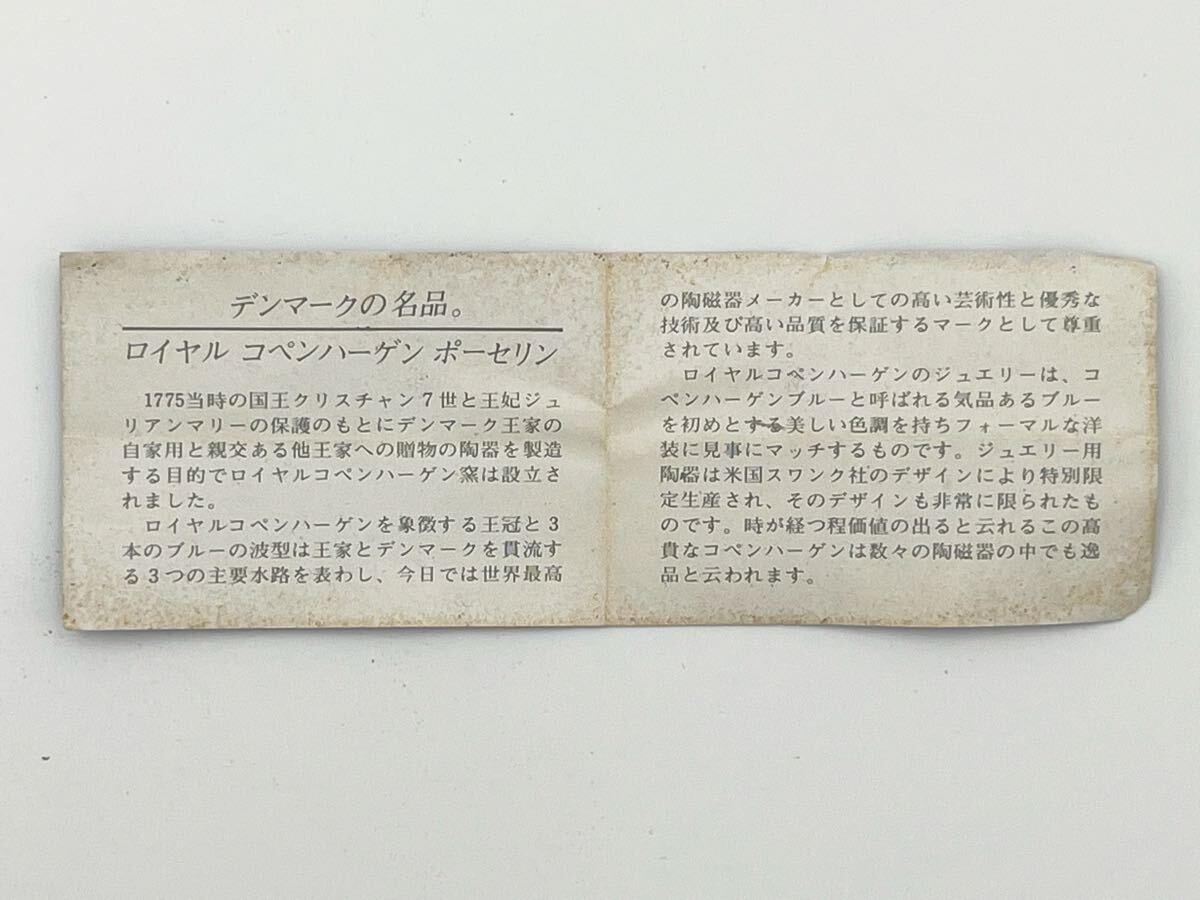 デンマークの名品。
ロイヤル コペンハーゲン ポーセリン
1775当時の国王クリスチャン7世と王妃ジュ
リアンマリーの保護のもとにデンマーク王家の
自家用と親交ある他王家への贈物の陶器を製造
する目的でロイヤルコペンハーゲン窯は設立さ
れました。
ロイヤルコペンハーゲンを象徴する王冠と3
本のブルーの波型は王家とデンマークを貫流す
る3つの主要水路を表わし、今日では世界最高
の陶磁器メーカーとしての高い芸術性と優秀な
技術及び高い品質を保証するマークとして尊重
されています。
ロイヤルコペンハーゲンのジュエリーは、コ
ペンハーゲンブルーと呼ばれる気品あるブルー
を初めとする美しい色調を持ちフォーマルな洋
装に見事にマッチするものです。ジュエリー用
陶器は米国スワンク社のデザインにより特別限
定生産され、そのデザインも非常に限られたも
のです。時が経つ程価値の出ると云れるこの高
貴なコペンハーゲンは数々の陶磁器の中でも逸
品と云われます。